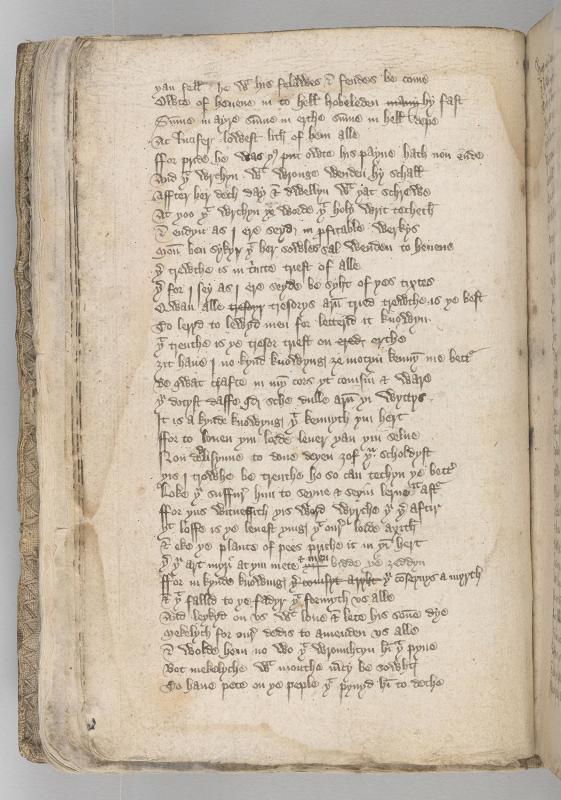 yan fell he wt his felawes & fenders be come
Owte of heuene in to hell hobeleden by fast
Summe in ayre summe in erthe summe in hell depe
At lucifer lowest lith of hem alle
ffor pride he was yt put owte his payne hath non ende
And yt wrchyn wt wronge wenden hy schall
Affter her deth day & dwellyn wt yat schrewe
At yoo yt wrchyn ye worde yt holy writ techeth
& endyn as I ere seyd in pfitable werkys
Moun ben sykyr yt her sowles sal wenden to heuene
yt trewthe is in trinte trest of alle
yt for I sey as I ere seyde be syht of yes tixtes
Qwan alle tresorys arn tried trewthe is ye best
So lerid to lewyd men for letterid it knowyn
yt treuthe is ye tresor triest on erthe
zit haue I no kynd knowyng ze motyn kenne me bett
be qwat crafte in my cors yt comsin & ware
yu dotyst daffe qd sche dulle arn yi wyttys
It is a kynde knowyng yt kennyth yin hert
ffor to louen yin lorde leuer yan yin selue
Non dedli synne to done deyen zof yu scholdyst
yis I trowhe be treuthe ho so can techyn ye bett
Loke yu suffir him to seyne & seyin lerne aft
ffor yus witnessith yis word wyrche yu yt aftir
yt loffe is ye leuest yinge yt our lorde axith
& eke ye plante of pees priche it in yi hert
yt yu art myri at yin mete & men bidde ye zeddyn
ffor in kynde knowing yt cosenys a myrth
& yt fallid to ye fadyr yt formyth vs alle
And lokyd on vs wt loue & lete his sone dye
Mekelych for our dedis to amenden vs alle
& wolde hem no wo yt wrouuhtyn hi yt pyne
Bot mekelyche wt mouthe mcy be sowht
To haue pete on ye peple yt pynyd hi to dethe